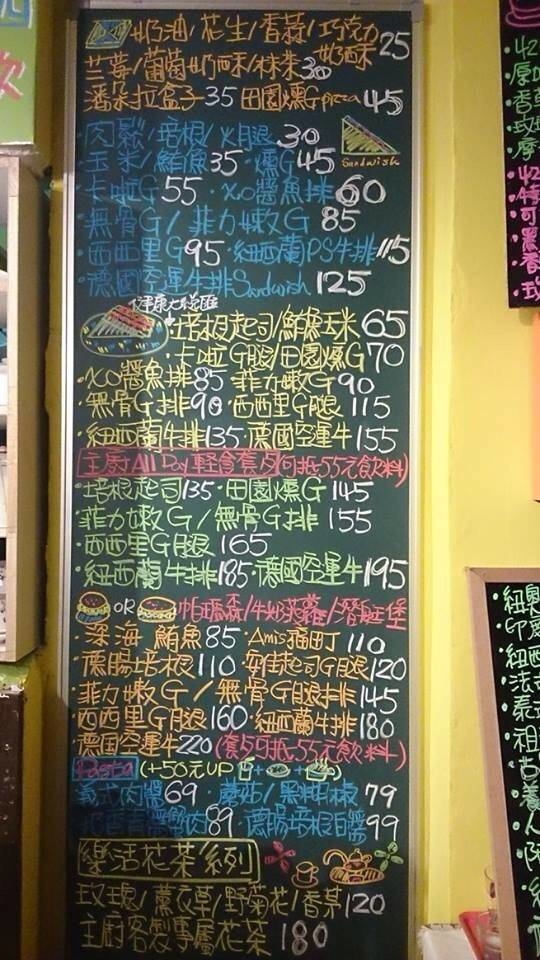 奶油/花生/香蒜/巧克力 25
奶酥
兰莓/葡萄奶酥/抹茶30
潘朵拉盒子35 田園燻G pizza 45
肉鬆/培根/火腿30
玉米/鮪魚35·燻G45
Sandwish
·卡啦G 55 ·XO醬魚排60
·無骨G/菲力嫩G 85
·西西里G95·紐西蘭PS牛排115
·德國空運牛排Sandwish 125
健康大燒匯
·培根起司/鮪魚玉米65
·卡啦G腿/田園燻G70
·XO醬魚排85 菲力嫩G90
·無骨G排90·西西里G腿 115
·紐西蘭牛排135·德國空運牛155
主廚All Day輕食套餐(可抵55元飲料)
·培根起司135·田園燻G 145
菲力嫩G/無骨G排 155
·西西里G腿 165
·紐西蘭牛排185·德國空運牛195
OR 帕瑪森/牛奶菠蘿/潛艇堡
·深海鮪魚85·Amis福町 110
·德腸培根110·起司G腿120
·菲力嫩G/無骨G腿排145
西西里G腿160·紐西蘭牛排180
德国空運牛220(套餐可抵55元飲料)
Pasta (+50元UP + + )
義式肉醬69 ·蘑菇/黑糊椒79
奶香青醬燻肉89·德腸培根白醬99
樂活花茶系列
玫瑰/薰衣草/野菊花/香茅120
主廚客製專屬花茶180